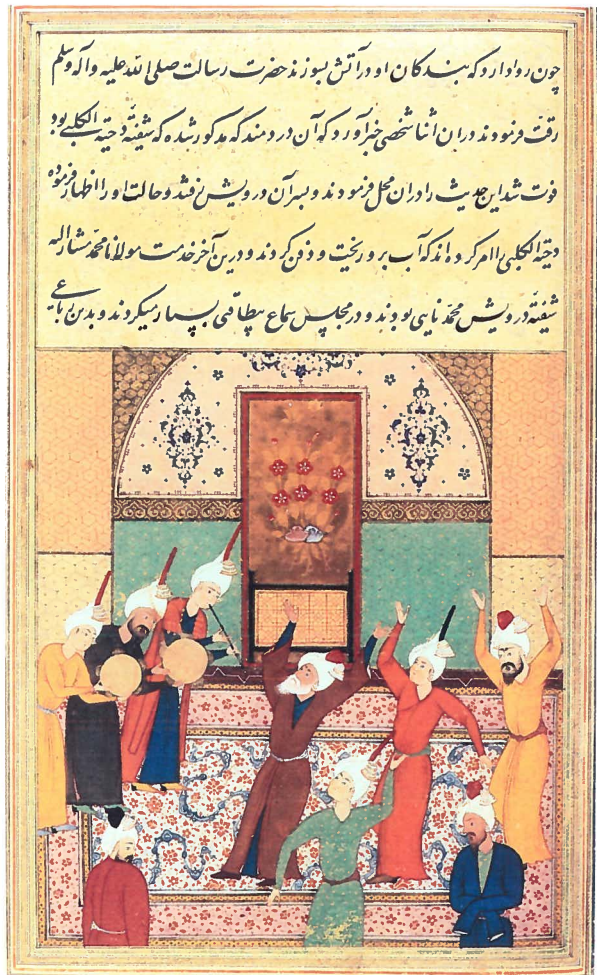 چون روا دارد که بندگان او در آتش بسوزند حضرت رسالت صلی الله علیه وآله وسلم
رقت فرمودند در ان اثنا شخصی خبر آورد که آن دردمند که مذکور شد که شیفتهٔ دحیة الکلبی بود
فوت شد این حدیث را در ان محل فرمودند و بسر آن درویش رفتند و حالت او را اظهار فرموده
دحیة الکلبی را امر کرده اند که آب برو ریخت و دفن کردند و درین آخر خدمت مولانا محمد مشار الیه
شیفتهٔ درویش محمد نایی بودند و در مجلس سماع بیطاقتی بسیار میکردند و بدین رباعی